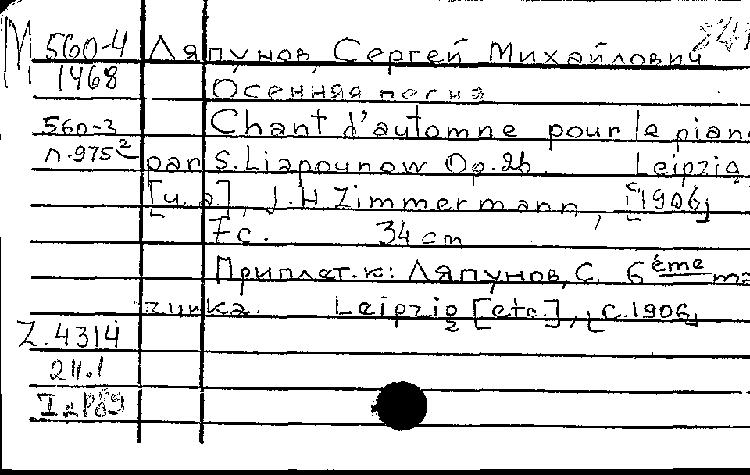 М 560-4 Ляпунов, Сергей Михайлович
1468 Осенняя песня
560-3 Chant d'automne pour le pian
п.975² par S. Liapounow Op. 26 Leipzig
[и.а], J. H Zimmermann, [c1906]
7 c. 34 cm
Приплет. к: Ляпунов, С. 6ème ma
zurka. Leipzig [etc.], [c.1906]
Z.4314
211.1